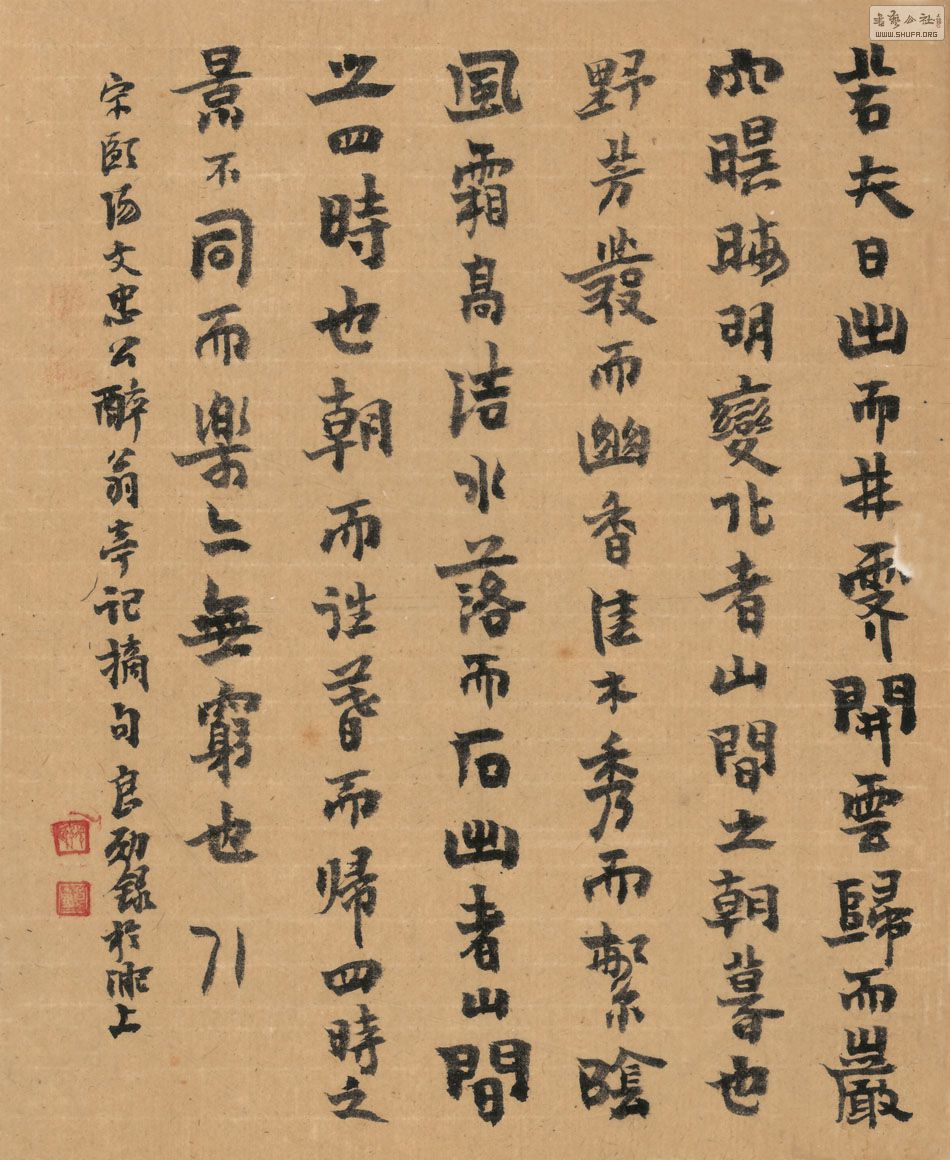 書藝公社
WWW.SHUFA.ORG
若夫日出而林霏開雲歸而巖
穴暝晦明變化者山間之朝暮也
野芳發而幽香佳木秀而繁陰
風霜高洁水落而石出者山間
之四時也朝而往暮而帰四時之
景不同而樂亦無窮也
宋歐陽文忠公醉翁亭記摘句 良 錄於 上